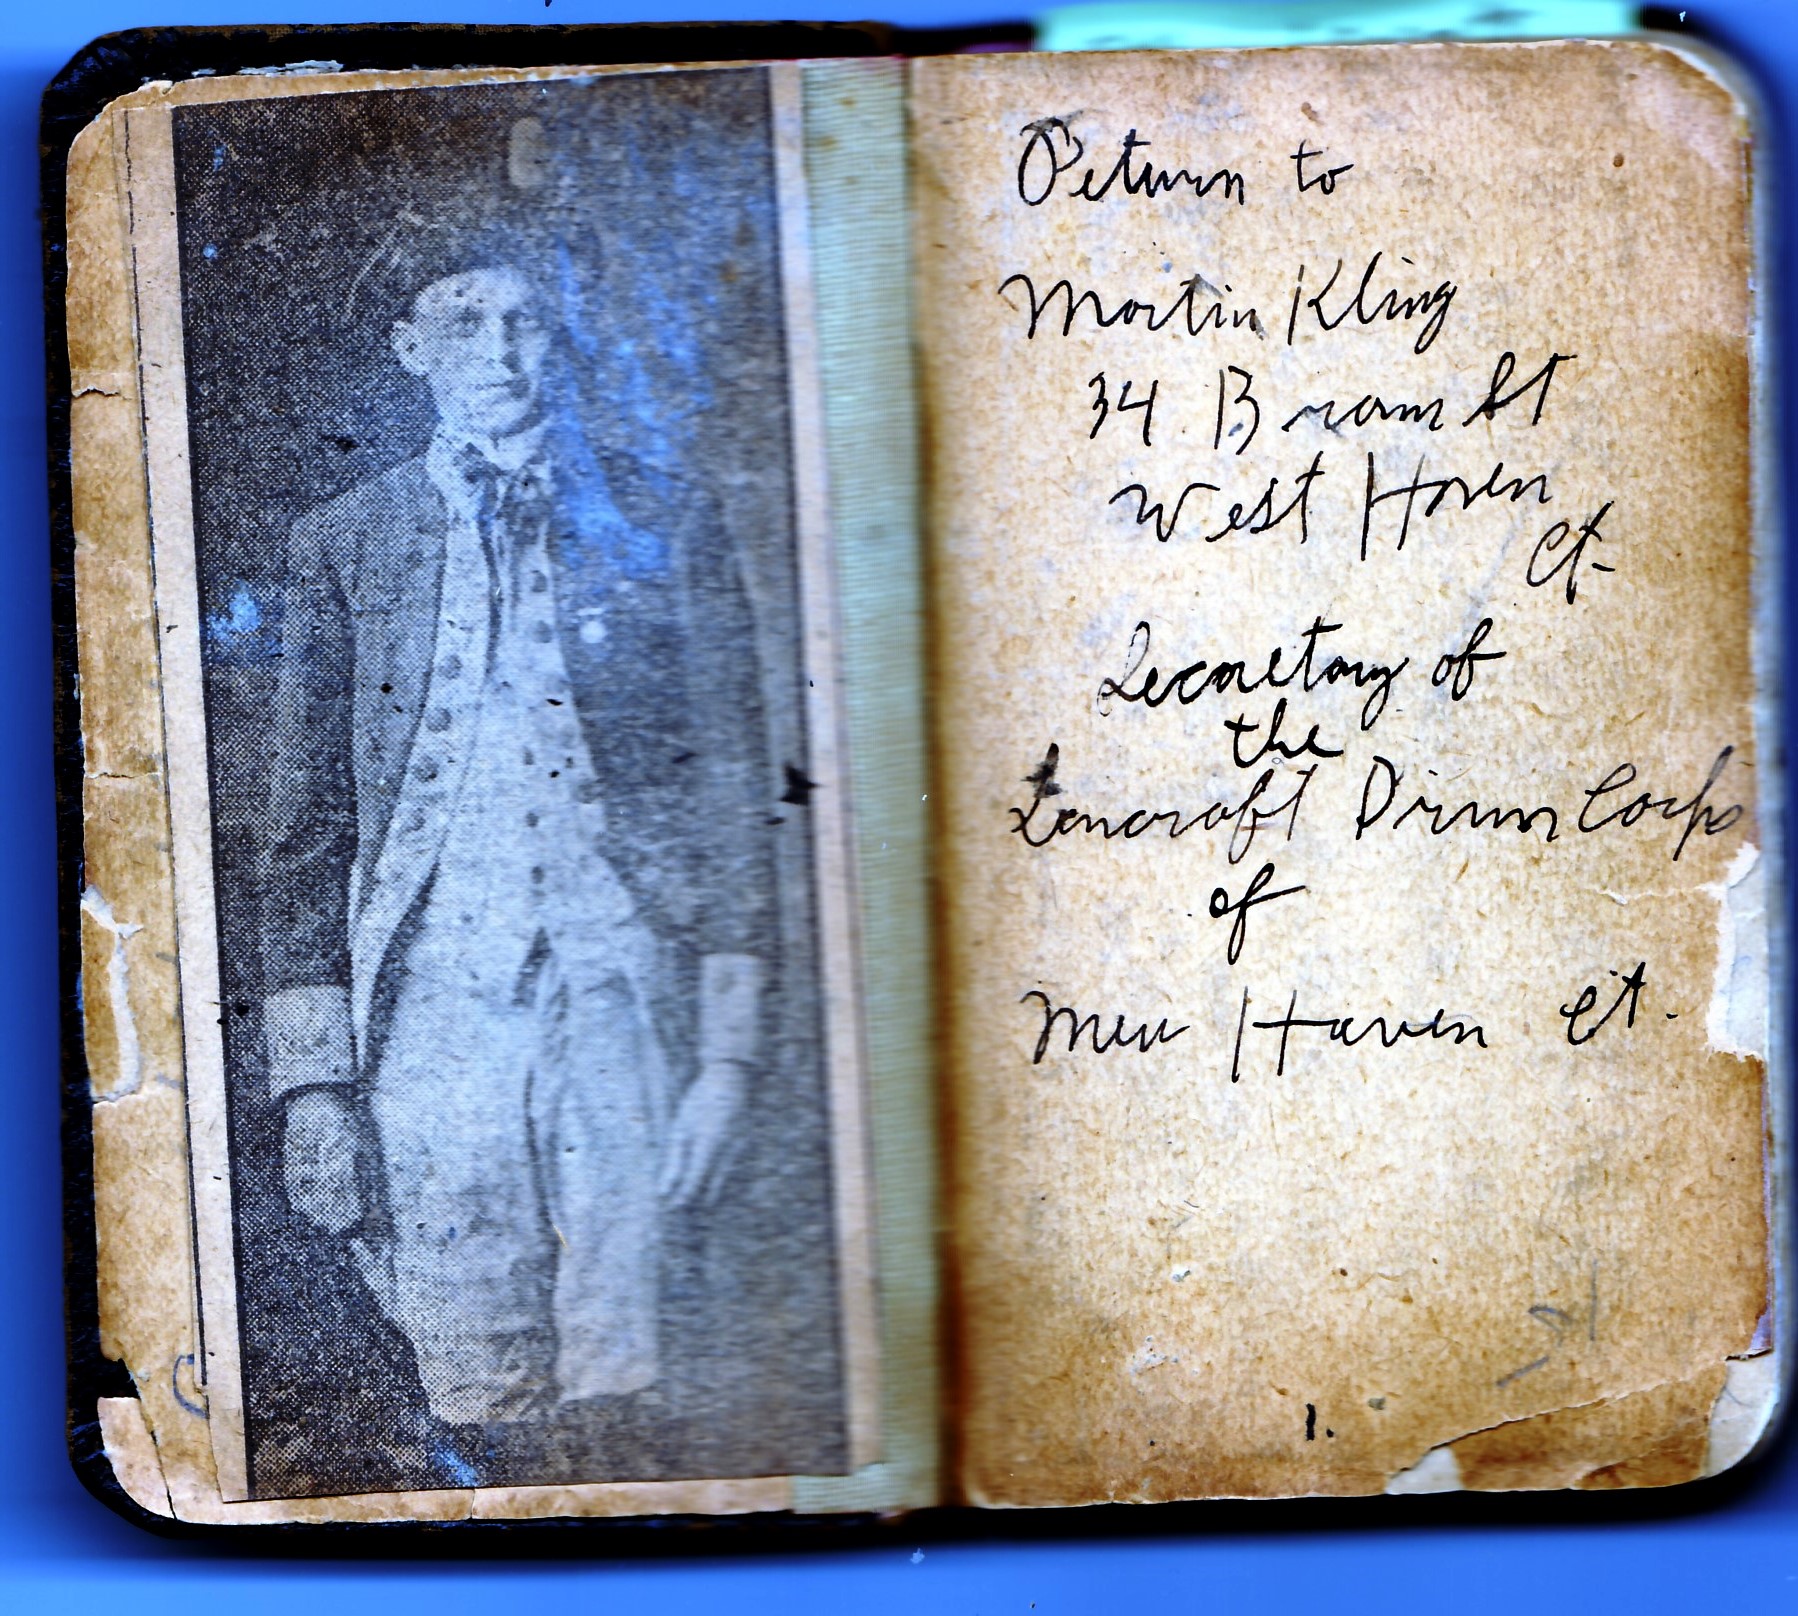 Return to
Martin Kling
34 Brown St
West Haven
Ct.
Secretary of
the
Lancraft Drum Corps
of
New Haven Ct.
1.